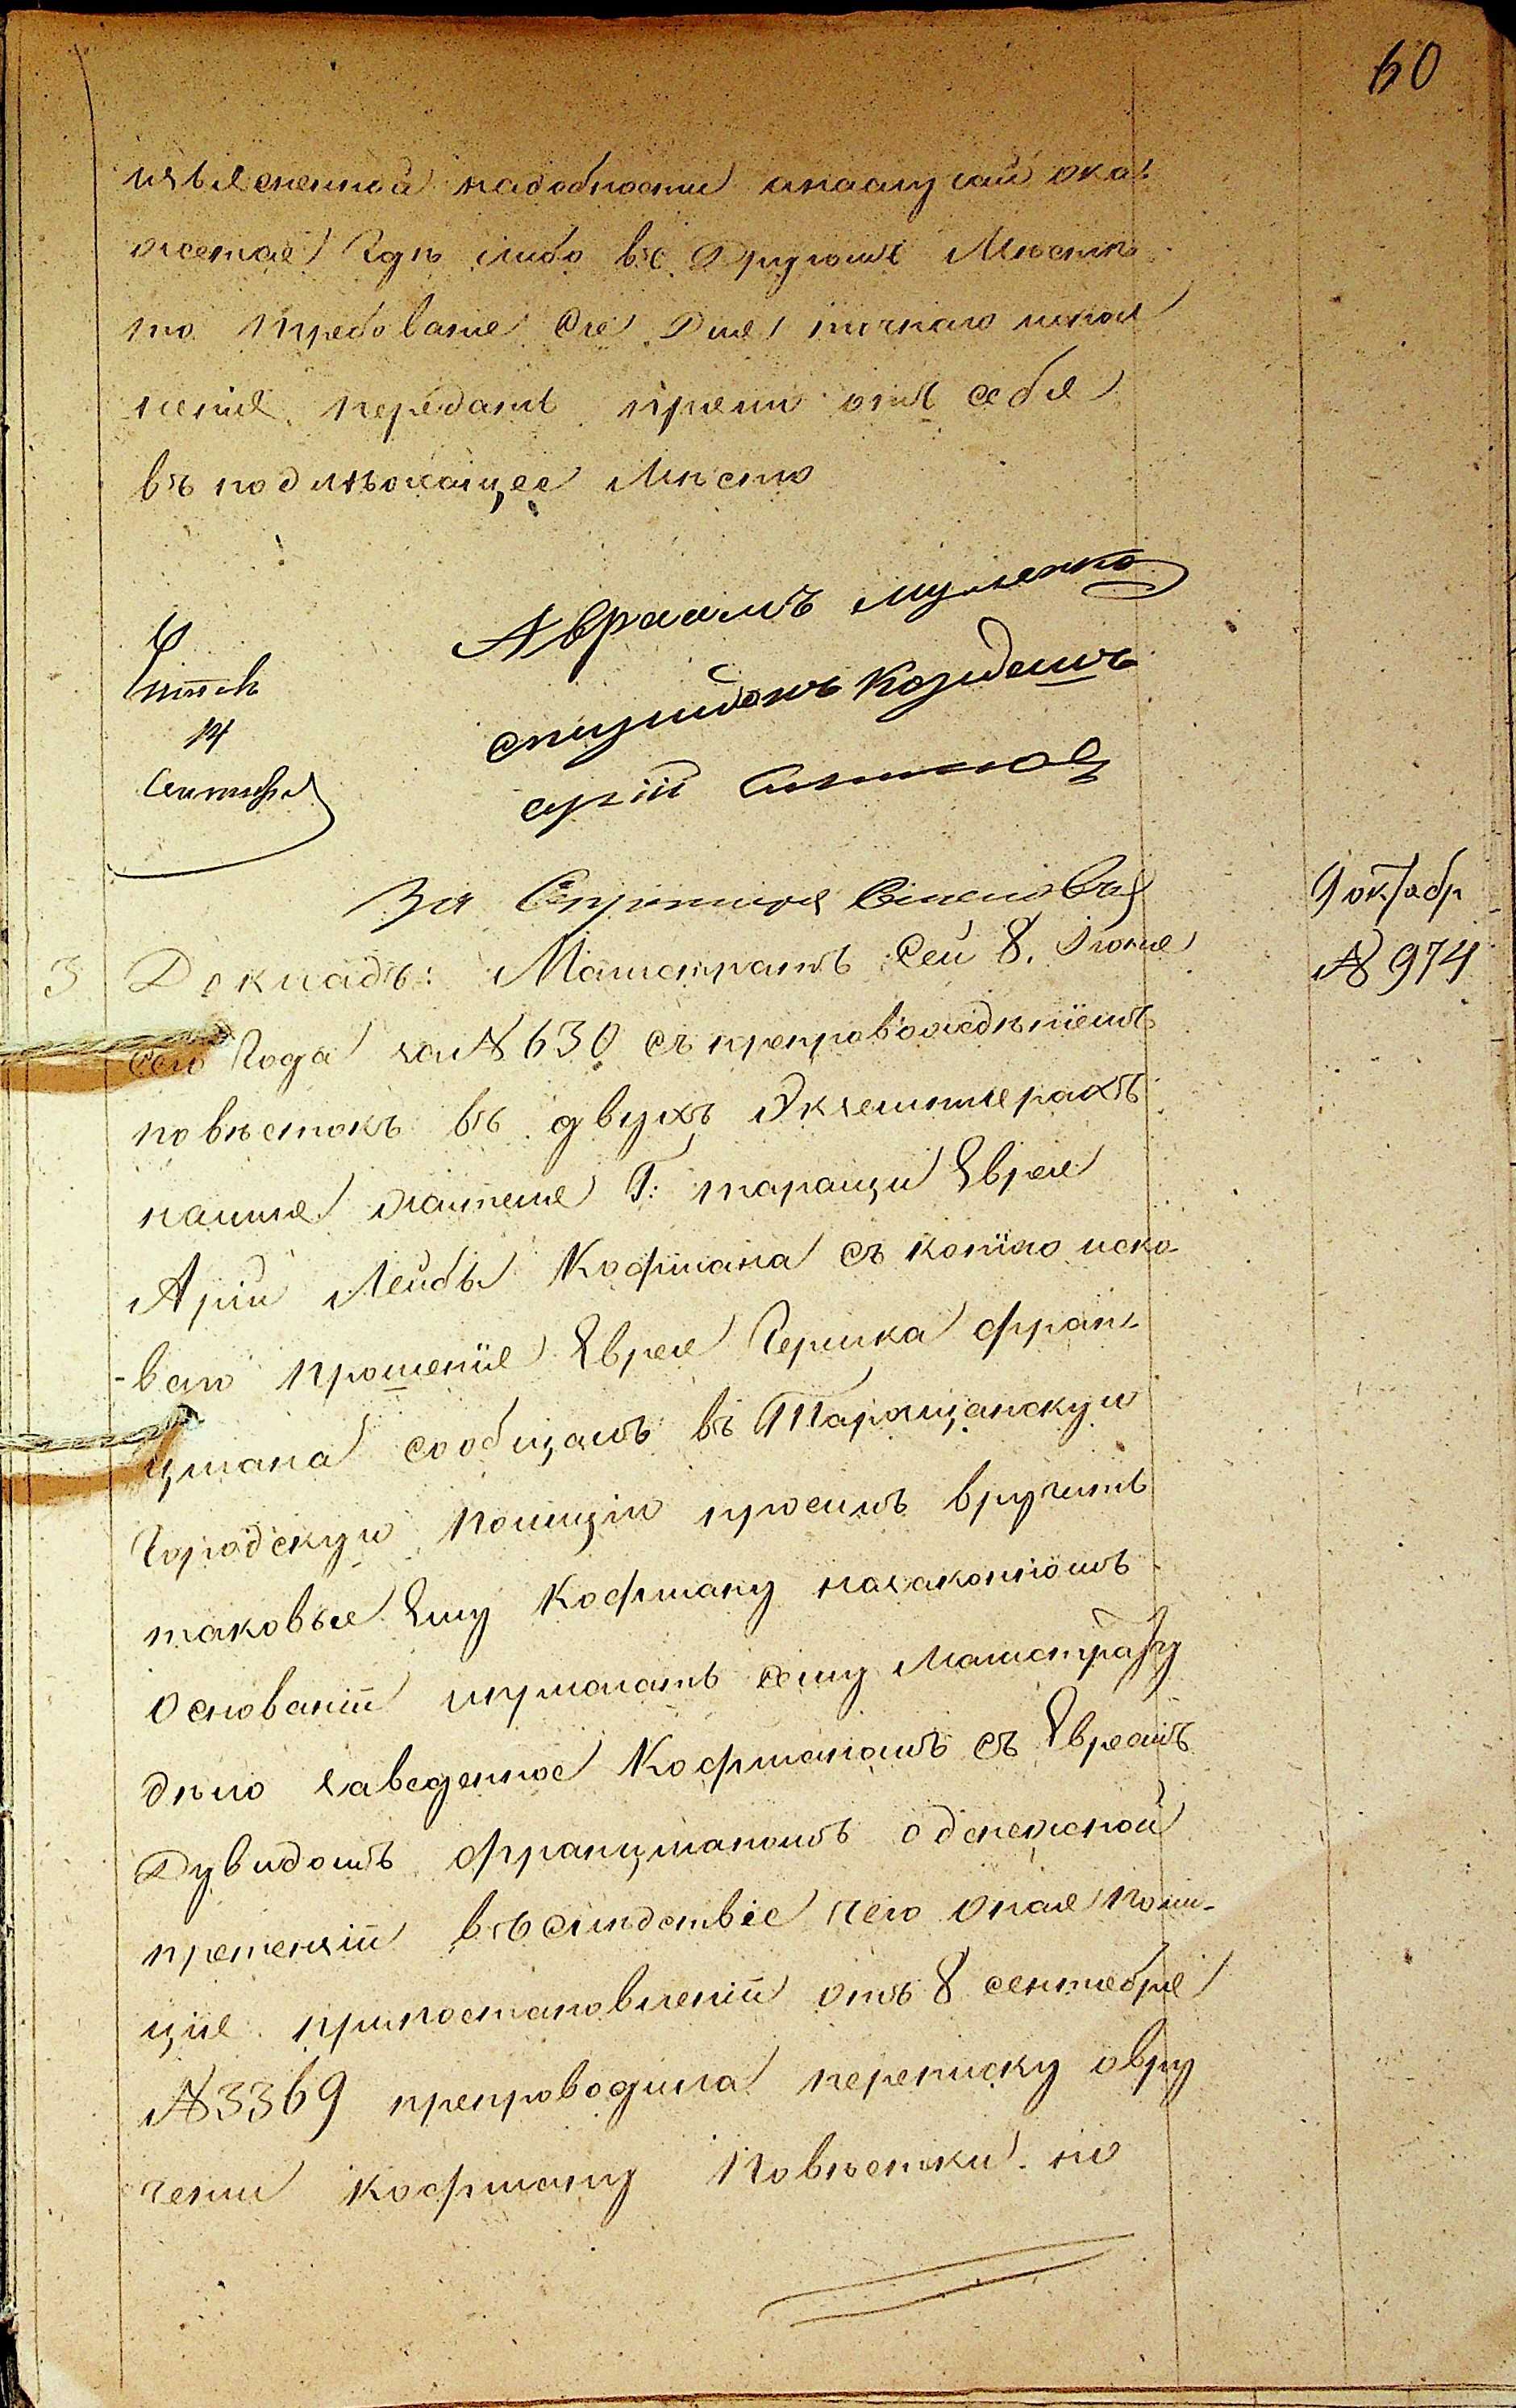 60
изъясненной надобности анаслучай ока
жется гдѣ либо въ Другомъ Мѣстѣ
то требованіе сіе Для точнаго испол
ненія передать прямо отъ себя
въ подлѣжащее Мѣсто
Авраамъ
14
За Секретаря
9 октябр
№ 974
3 Докладъ: Магистратъ Сей 8. Іюня
сего года за № 630 съ препровождѣніемъ
повѣстокъ въ двухъ Экземплерахъ
наимя жителя Г: таращи Еврея
Арій Лейбы Кофмана съ копіею иско-
-ваго прошенія Еврея Гершка Фран-
цмана сообщалъ въ Таращанскую
Городскую полицію просилъ вручить
таковые Ему Кофману назаконномъ
основаніи и прислать сему Магистрату
дѣло заведенное Кофманомъ съ Евреемъ
Дувидомъ Францманомъ о денежной
претензіи въслѣдствіе чего оная поли-
ція припостановленіи отъ 8 сентября
№ 3369 препроводила переписку овру
ченіи Кофману Повѣстки. но